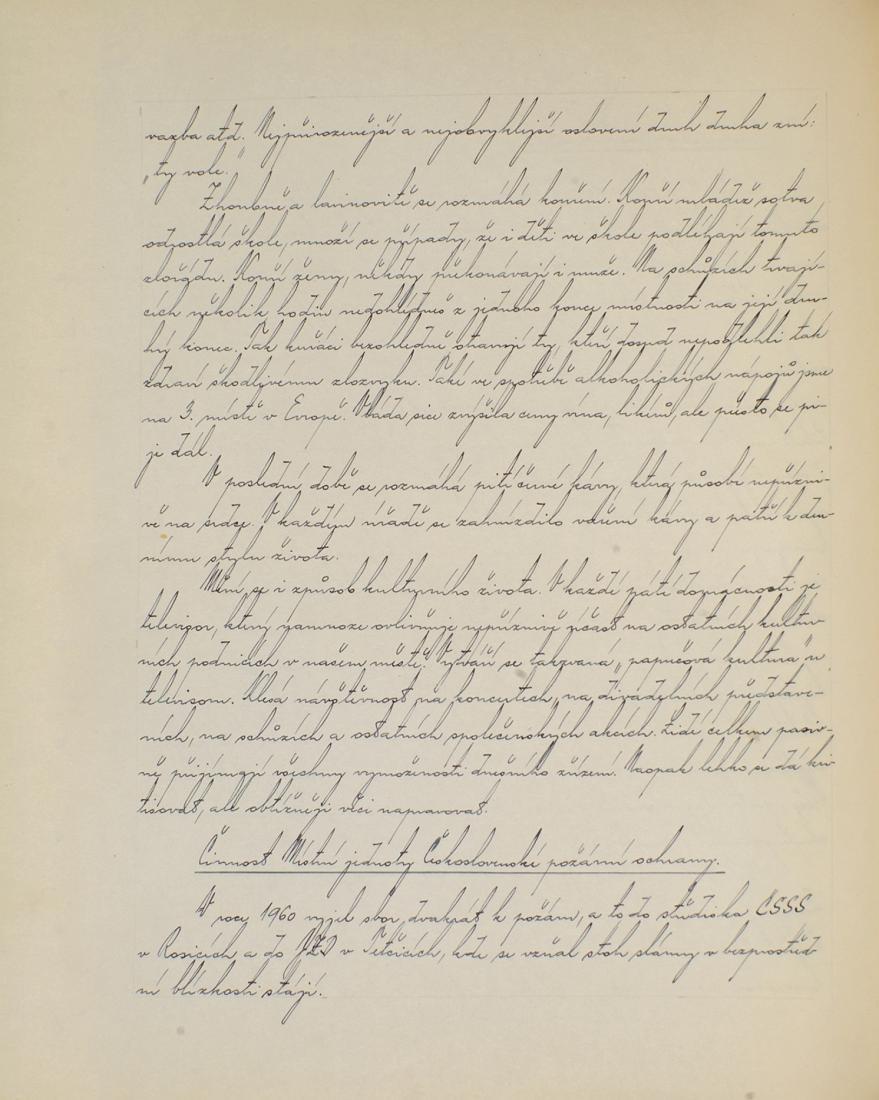 vazba atd. Nejpřirozenější a nejobvyklejší oslovení druh druha zní:
„ty vole."
Zhoubně a lavinovitě se rozmáhá kouření. Kouří mládež sotva
odrostlá škole, množí se případy, že i děti ve škole podléhají tomuto
zlořádu. Kouří ženy, někdy překonávají i muže. Na schůzích trvají-
cích několik hodin nedohlédneš z jednoho konce místnosti na její dru-
hý konec. Tak kuřáci bezohledně otravují ty, kteří dosud nepodlehli tak
zdraví škodlivému zlozvyku. Také ve spotřebě alkoholických nápojů jsme
na 3. místě v Evropě. Vláda sice zvýšila ceny vína, likérů, ale přesto se pi-
je dál.
V poslední době se rozmáhá pití černé kávy, která působí nepřízni-
vě na srdce. V každém úřadě se zahnízdilo vaření kávy a patří k den-
nímu stylu života.
Mění se i způsob kulturního života. V každé páté domácnosti je
televizor, který namnoze ovlivňuje nepříznivě účast na ostatních kultur-
ních podnicích v našem městě. Vytváří se takzvaná „papučová kultura" u
televisorů. Klesá návštěvnost na koncertech, na divadelních představe-
ních, na schůzích a ostatních společenských akcích. Lidé celkem pasiv-
ně přijímají všechny vymoženosti dnešního zřízení. Naopak lehko se dá kri-
tisovat, ale obtížněji věci napravovat.
Činnost Místní jednoty Československé požární ochrany.
V roce 1960 vyjel sbor dvakrát k požáru, a to do střediska ČSSS
v Rosicích a do JZD v Tetčicích, kde se vzňal stoh slámy v bezprostřed-
ní blízkosti stájí.